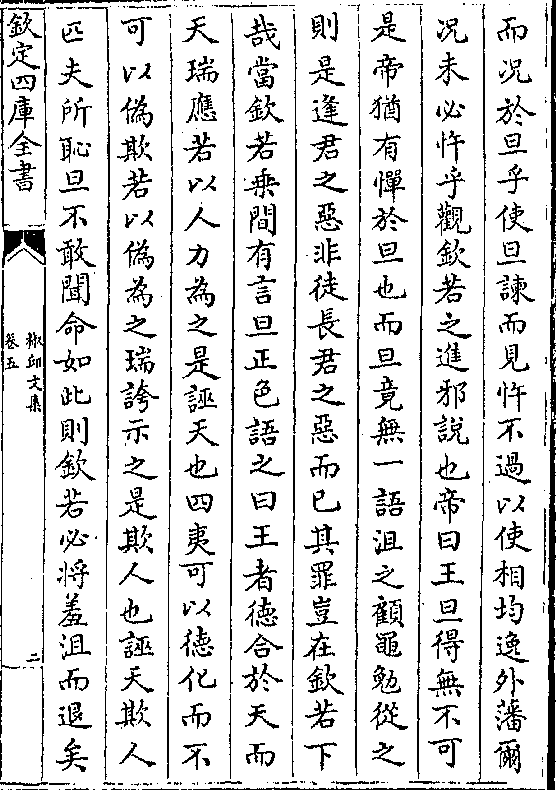 而况於旦乎使旦諫而見忤不過以使相均逸外藩爾
况未必忤乎觀欽若之進邪說也帝曰王旦得無不可
是帝猶有憚於旦也而旦竟無一語沮之顧黽勉從之
則是逢君之惡非徒長君之惡而已其罪豈在欽若下
哉當欽若乘間有言旦正色語之曰王者徳合於天而
天瑞應若以人力為之是誣天也四夷可以徳化而不
可以偽欺若以偽為之瑞誇示之是欺人也誣天欺人
匹夫所恥旦不敢聞命如此則欽若必將羞沮而退矣
欽定四庫全書
椒邱文集
卷五
二